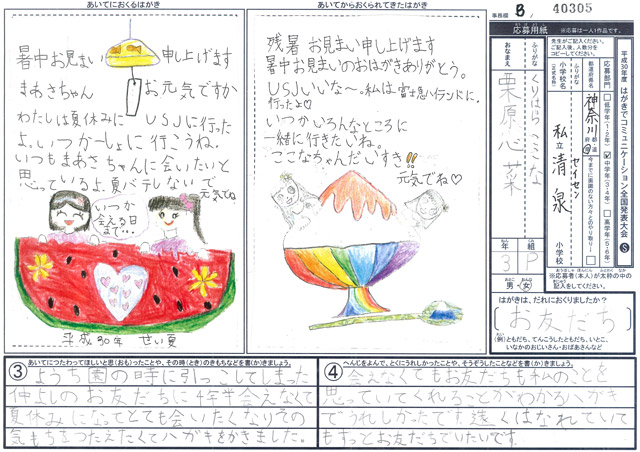 あいてにおくるはがき
暑中お見まい申し上げます
まあさちゃん
お元気ですか
わたしは夏休みに USJに行った
よ。いつか一しょに行こうね。
いつもまあさちゃんに会いたいと
思っているよ。夏バテしないで
元気でね
いつか
会える日
まで…
平成30年 せい夏
あいてからおくられてきたはがき
残暑お見まい申し上げます
暑中お見まいのおはがきありがとう。
USJいいな〜。私は富士急ハイランドに
行ったよ♡
いつかいろんなところに
一緒に行きたいね。
ここなちゃんだいすき!!
元気でね♡
事務欄 B/ 40305
応募用紙
※応募は一人1作品です。
先生がご記入ください。
ご記入後、人数分を
コピーしてください。
平成30年度 はがきでコミュニケーション全国発表大会 S
応募部門
低学年(1・2年)
☑中学年(3・4年)
高学年(5・6年)
都道府県名
神奈川 都・道・府・県
今までに面識のない方々とのやり取り
ふりがな
セイセン
小学校名
(正式名称)
私立清泉
小学校
ふりがな
くりはら ここな
おなまえ
栗原 心菜
年 組
3 P
男・女
※応募者(本人)が太枠の中の
記入をしてください。
はがきは、だれにおくりましたか?
お友だち
(例)ともだち、てんこうしたともだち、いとこ、
いなかのおじいさん・おばあさんなど
③ あいてにつたわってほしいと思(おも)ったことや、その時(とき)のきもちなどを書(か)きましょう。
ようち園の時に引っこしてしまった
仲よしのお友だちに4年半会えなくて
夏休みになってとても会いたくなりその
気もちをつたえたくてハガキをかきました。
④ へんじをよんで、とくにうれしかったことや、そうぞうしたことなどを書(か)きましょう。
会えなくてもお友だちも私のことを
思っていてくれることがわかるハガキ
でうれしかったです遠くはなれていて
もずっとお友だちでいたいです。